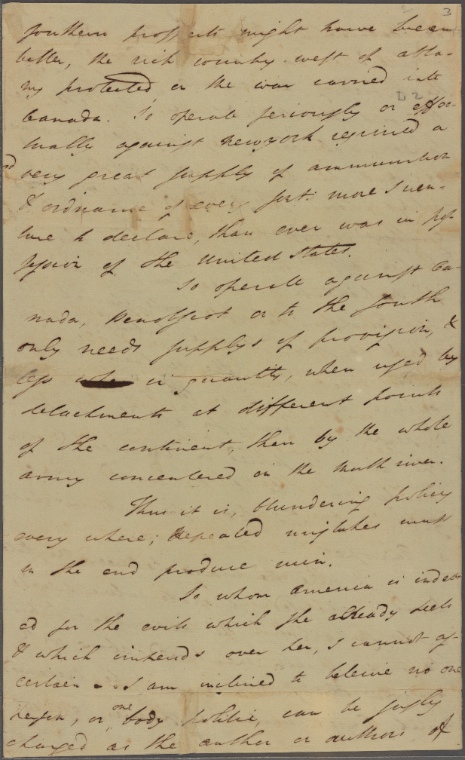 3
southern prospects might have been
better, the rich country west of alba-
ny protected or the war carried into
D 2
Canada. To operate seriously or effec-
tually against Newyork required a
very great supply of ammunition
& ordnance of every sort: more I ven-
ture to declare, than ever was in pos-
session of the United States.
To operate against Ca-
nada, Penobscot or to the South
only needs supplys of provision, &
less in quantity, when used by
detachments at different points
of the continent, than by the whole
army concentered on the North river.
Thus it is, blundering policy
every where; Repeated mistakes must
in the end produce ruin.
To whom America is indebt
ed for the evils which she already feels
& which impends over her, I cannot as-
certain - I am inclined to beleive no one
person, or one body politic, can be justly
charged as the author or authors of